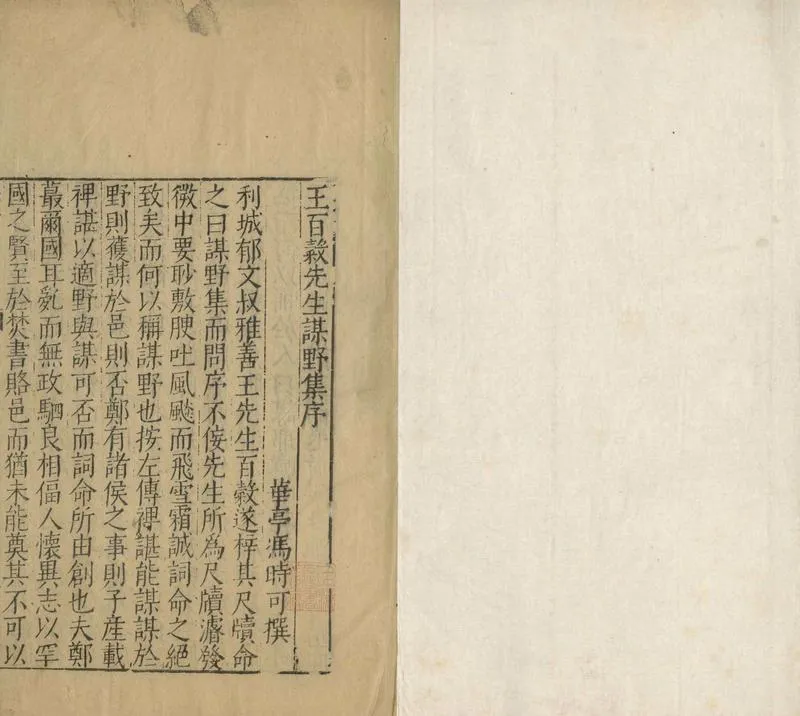 王百穀先生謀野集序
華亭馮時可撰
利城郁文叔雅善王先生百穀遂梓其尺牘命
之曰謀野集而問序不佞先生所為尺牘濬發
微中要眇敷腴吐風飈而飛雪霜誠詞命之絕
致矣而何以稱謀野也按左傳裨諶能謀謀於
野則獲謀於邑則否鄭有諸侯之事則子產載
裨諶以適野與謀可否而詞命所由創也夫鄭
蕞爾國耳亂而無政駟良相偪人懷異志以罕
國之賢至於焚書賂邑而猶未能奠其不可以